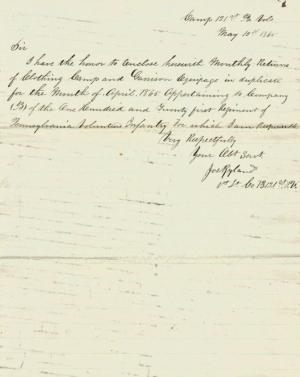 Camp 121st Pa Vols
May 10th 1865
Sir
I have the honor to enclose herewith Monthly Returns
of Clothing Camp and Garrison Equipage in duplicate
for the Month of April 1865 Appertaining to Company
(B) of the One Hundred and Twenty first Regiment of
Pennsylvania Volunteer Infantry for which I am Responsible
Very Respectfully
Your Obt Servt
Jos Ryland
1st Lt Co B 121st P.V.